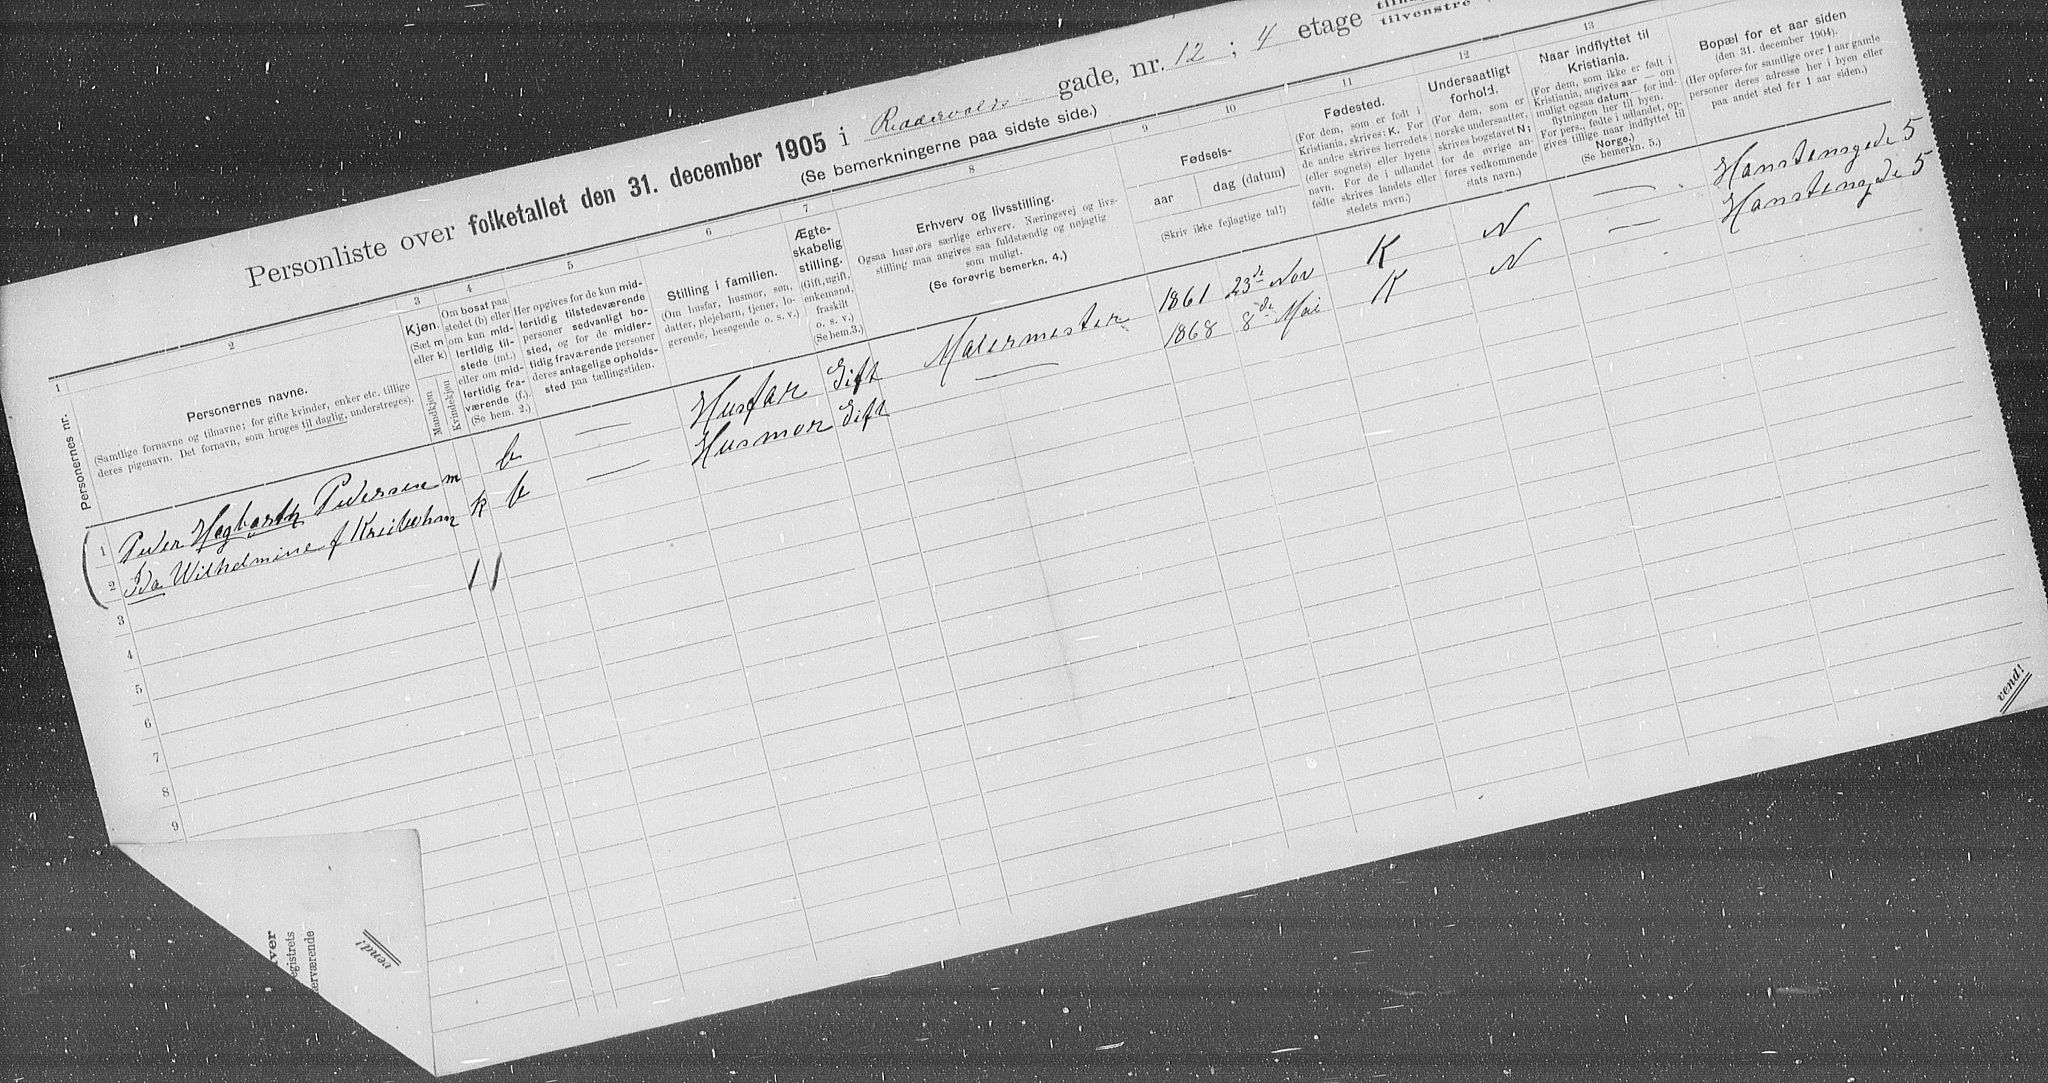 Personliste over folketallet den 31. december 1905 i Riddervolds gade, nr. 12 ; 4 etage tilvenstre
(Se bemerkningerne paa sidste side.)
1 2 3 4 5 6 7 8 9 10 11 12 13
Personernes nr.
Personernes navne.
(Samtlige fornavne og tilnavne; for gifte kvinder, enker etc. tillige
deres pigenavn. Det fornavn, som bruges til daglig, understreges).
Kjøn.
(Sæt m
eller k)
Mandkjøn
Kvindekjøn
Om bosat paa
stedet (b) eller
om kun mid-
lertidig til-
stede (mt.)
eller om mid-
lertidig fra-
værende (f.).
(Se bem. 2.)
Her opgives for de kun mid-
lertidig tilstedeværende
personer sedvanligt bo-
sted, og for de midler-
tidig fraværende personer
deres antagelige opholds-
sted paa tællingstiden.
Stilling i familien.
(Om husfar, husmor, søn,
datter, plejebarn, tjener, lo-
gerende, besøgende o. s. v.)
Ægte-
skabelig
stilling.
(Gift, ugift,
enkemand,
fraskilt
o. s. v.)
(Se bem.3.)
Erhverv og livsstilling.
Ogsaa husmors særlige erhverv. Næringsvej og livs-
stilling maa angives saa fuldstændig og nøjagtig
som muligt.
(Se forøvrig bemerkn. 4.)
Fødsels-
aar
dag (datum)
(Skriv ikke fejlagtige tal!)
Fødested.
(For dem, som er født i
Kristiania, skrives: K. For
de andre skrives herredets
(eller sognets) eller byens
navn. For de i udlandet
fødte skrives landets eller
stedets navn.)
Undersaatligt
forhold.
(For dem, som er
norske undersaatter,
skrives bogstavet N;
for de øvrige an-
føres vedkommende
stats navn.)
Naar indflyttet til
Kristiania.
(For dem, som ikke er født i
Kristiania, angives aar — om
muligt ogsaa datum — for ind-
flytningen her til byen.
For pers., fødte i udlandet, op-
gives tillige naar indflyttet til
Norge.)
(Se bemerkn. 5.)
Bopæl for et aar siden
(den 31. december 1904).
(Her opføres for samtlige over 1 aar gamle
personer deres adresse her i byen eller
paa andet sted for 1 aar siden.)
1 Peder Hagbarth Pedersen m b — Husfar Gift Malermester 1861 23de Nov K N — Hanstensgade 5
2 Ida Wilhelmine f Kreibohm k b — Husmor Gift — 1868 8de Mai K N — Hanstensgade 5
1 1
3
4
5
6
7
8
9
vend!
vend!
egistrets
erværende